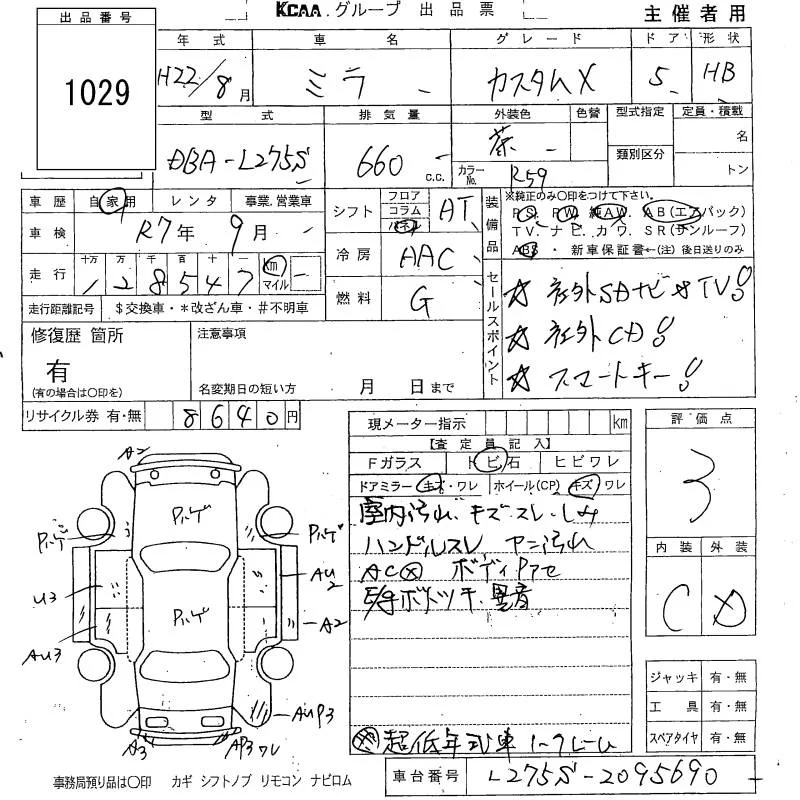 KCAA グループ 出品票
主催者用
出品番号
1029
年式 車名 グレード ドア 形状
H22/8月 ミラ カスタムX 5 HB
型式 排気量 外装色 色替 型式指定 定員・積載
DBA-L275S 660 c.c. 茶 名
カラーNo. R59 類別区分 トン
車歴 自家用 レンタ 事業.営業車
車検 R7年 9月
走行 十万 万 千 百 十 一
128547 km マイル
走行距離記号 $交換車・*改ざん車・#不明車
シフト フロア コラム AT
冷房 AAC
燃料 G
装備品 ※純正のみ○印をつけて下さい。
PS. PW. 純AW. AB(エアバック)
TV. ナビ. カワ. SR(サンルーフ)
ABS・新車保証書←(注)後日送りのみ
セールスポイント
☆社外SDナビ.TV!
☆社外CD!
☆スマートキー!
修復歴 箇所
有
(有の場合は○印を)
注意事項
名変期日の短い方 月 日まで
リサイクル券 有・無 8640円
現メーター指示 km
【査定員記入】
Fガラス トビ石 ヒビワレ
ドアミラー キズ・ワレ ホイール(CP) キズ ワレ
室内汚れ.キズ.スレ.しみ
ハンドルスレ ヤニ汚れ
AC ボディPアセ
異音
超低年式車
評価点
3
内装 外装
C D
ジャッキ 有・無
工具 有・無
スペアタイヤ 有・無
A2
Pハゲ
Pハゲ
Pハゲ
AU2
U3
Pハゲ
A2
AU3
AUP3
A3
AP3 ワレ
事務局預り品は○印 カギ シフトノブ リモコン ナビロム
車台番号 L275S-2095690